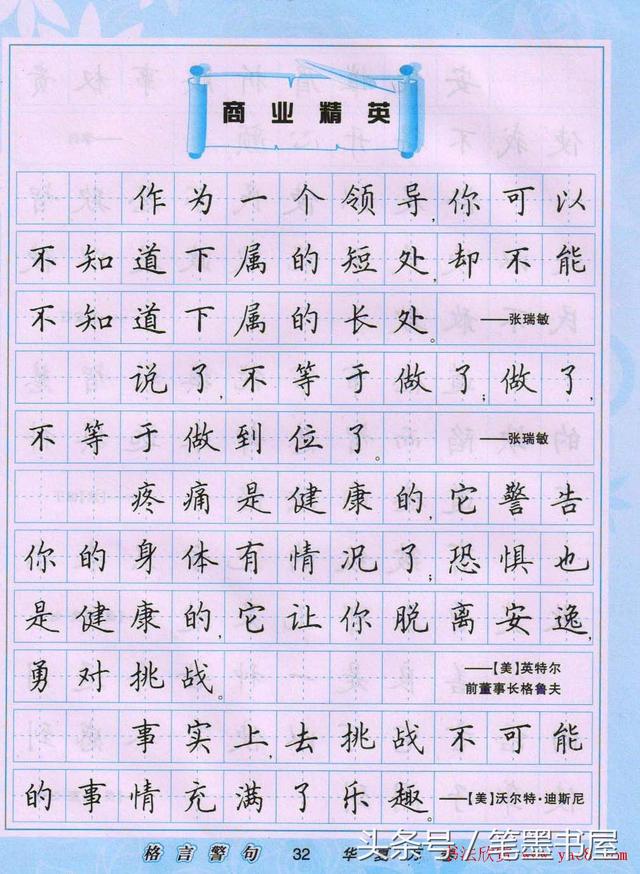 商业精英
作为一个领导,你可以
不知道下属的短处,却不能
不知道下属的长处。 ——张瑞敏
说了,不等于做了;做了,
不等于做到位了。 ——张瑞敏
疼痛是健康的,它警告
你的身体有情况了;恐惧也
是健康的,它让你脱离安逸,
勇对挑战。 ——【美】英特尔
前董事长格鲁夫
事实上,去挑战不可能
的事情充满了乐趣。 ——【美】沃尔特·迪斯尼
格言警句 32 华夏万
头条号/笔墨书屋